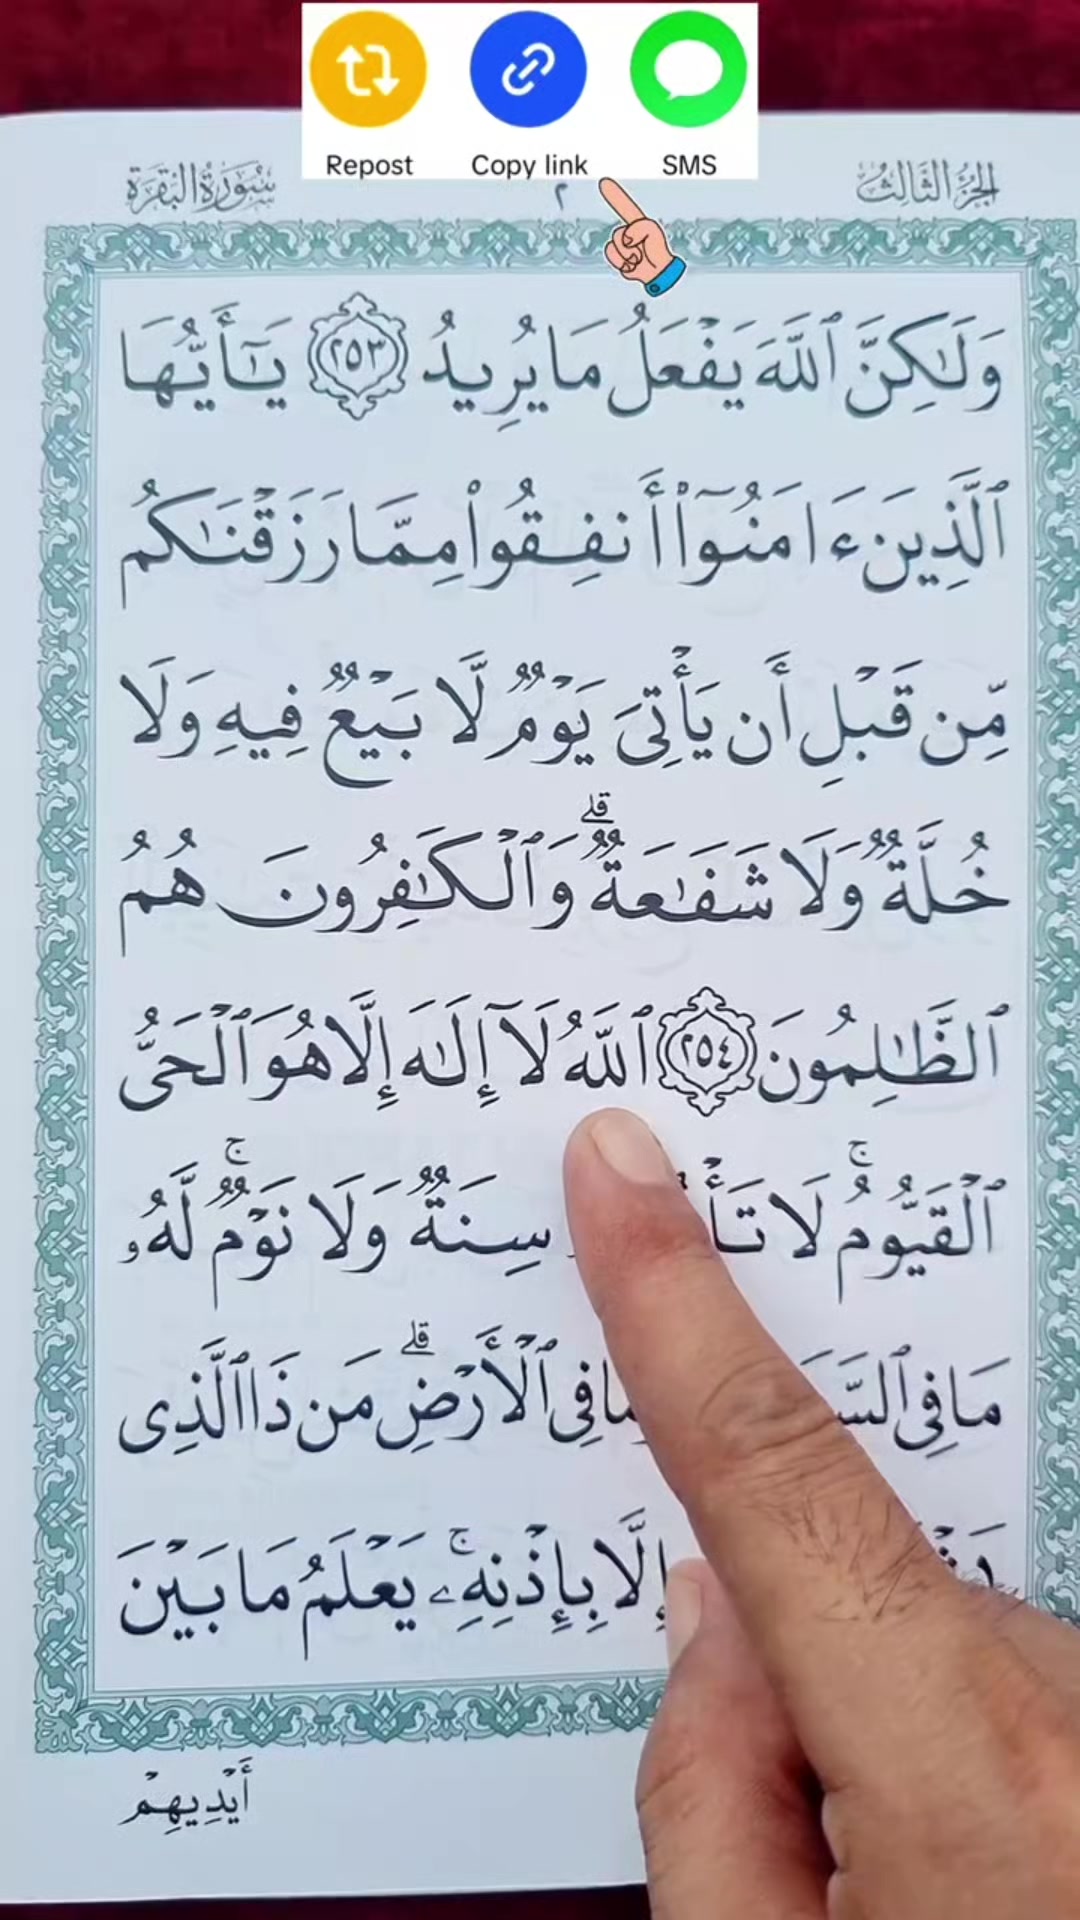 Repost Copy link SMS
الجزء الثالث ٢ سورة البقرة
وَلَٰكِنَّ ٱللَّهَ يَفۡعَلُ مَا يُرِيدُ ٢٥٣ يَٰٓأَيُّهَا
ٱلَّذِينَ ءَامَنُوٓاْ أَنفِقُواْ مِمَّا رَزَقۡنَٰكُم
مِّن قَبۡلِ أَن يَأۡتِيَ يَوۡمٞ لَّا بَيۡعٞ فِيهِ وَلَا
خُلَّةٞ وَلَا شَفَٰعَةٞۗ وَٱلۡكَٰفِرُونَ هُمُ
ٱلظَّٰلِمُونَ ٢٥٤ ٱللَّهُ لَآ إِلَٰهَ إِلَّا هُوَ ٱلۡحَيُّ
ٱلۡقَيُّومُۚ لَا سِنَةٞ وَلَا نَوۡمٞۚ لَّهُۥ
مَا فِي فِي ٱلۡأَرۡضِۗ مَن ذَا ٱلَّذِي
إِلَّا بِإِذۡنِهِۦۚ يَعۡلَمُ مَا بَيۡنَ
أَيۡدِيهِمۡ